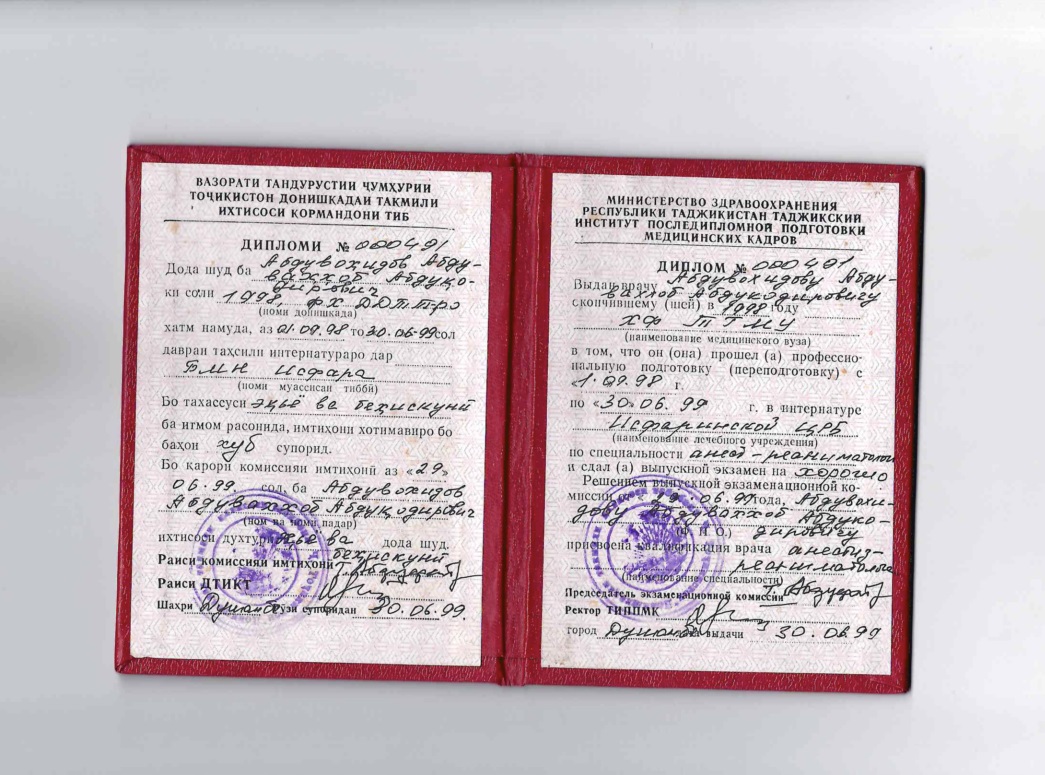 ВАЗОРАТИ ТАНДУРУСТИИ ҶУМҲУРИИ
ТОҶИКИСТОН ДОНИШКАДАИ ТАКМИЛИ
ИХТИСОСИ КОРМАНДОНИ ТИБ
ДИПЛОМИ № 000491
Дода шуд ба Абдувохидов Абду-
ваххоб Абдуқо-
дирович
ки соли 1998, ФХ ДДТТРО
(номи донишкада)
хатм намуда, аз 01.09.98 то 30.06.99 сол
давраи таҳсили интернатураро дар
БМН Исфара
(номи муассисаи тиббӣ)
Бо тахассуси эҳьё ва беҳискунӣ
ба итмом расонида, имтиҳони хотимавиро бо
баҳои хуб супорид.
Бо қарори комиссияи имтиҳонӣ аз «29»
06.99. сол, ба Абдувохидов
Абдуваххоб Абдуқодирович
(ном ва номи падар)
ихтисоси духтури эҳьё ва дода шуд.
беҳискунӣ
Раиси комиссияи имтиҳонӣ
Раиси ДТИКТ
Шаҳри Душанбе Рӯзи супоридан 30.06.99.
МИНИСТЕРСТВО ЗДРАВООХРАНЕНИЯ
РЕСПУБЛИКИ ТАДЖИКИСТАН ТАДЖИКСКИЙ
ИНСТИТУТ ПОСЛЕДИПЛОМНОЙ ПОДГОТОВКИ
МЕДИЦИНСКИХ КАДРОВ
ДИПЛОМ № 000491
Выдан врачу Абдувохидову Абду-
ваххоб Абдукодировичу
окончившему (шей) в 1998 году
ХФ ТГМУ
(наименование медицинского вуза)
в том, что он (она) прошел (а) профессио-
нальную подготовку (переподготовку) с
«1» 09.98 г.
по «30» 06.99 г. в интернатуре
Исфаринской ЦРБ
(наименование лечебного учреждения)
по специальности анест-реаниматолог
и сдал (а) выпускной экзамен на хорошо
Решением выпускной экзаменационной ко-
миссии от 29.06.99 года, Абдувохи-
дову Абдуваххоб Абдуко-
(Ф. И. О.) дировичу
присвоена квалификация врача анестез-
реаниматолога
(наименование специальности)
Председатель экзаменационной комиссии
Ректор ТИППМК
город Душанбе дата выдачи 30.06.99